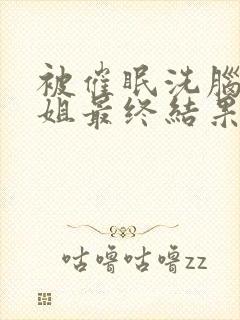 被催眠洗腦
姐最终結果
咕噜咕噜zz